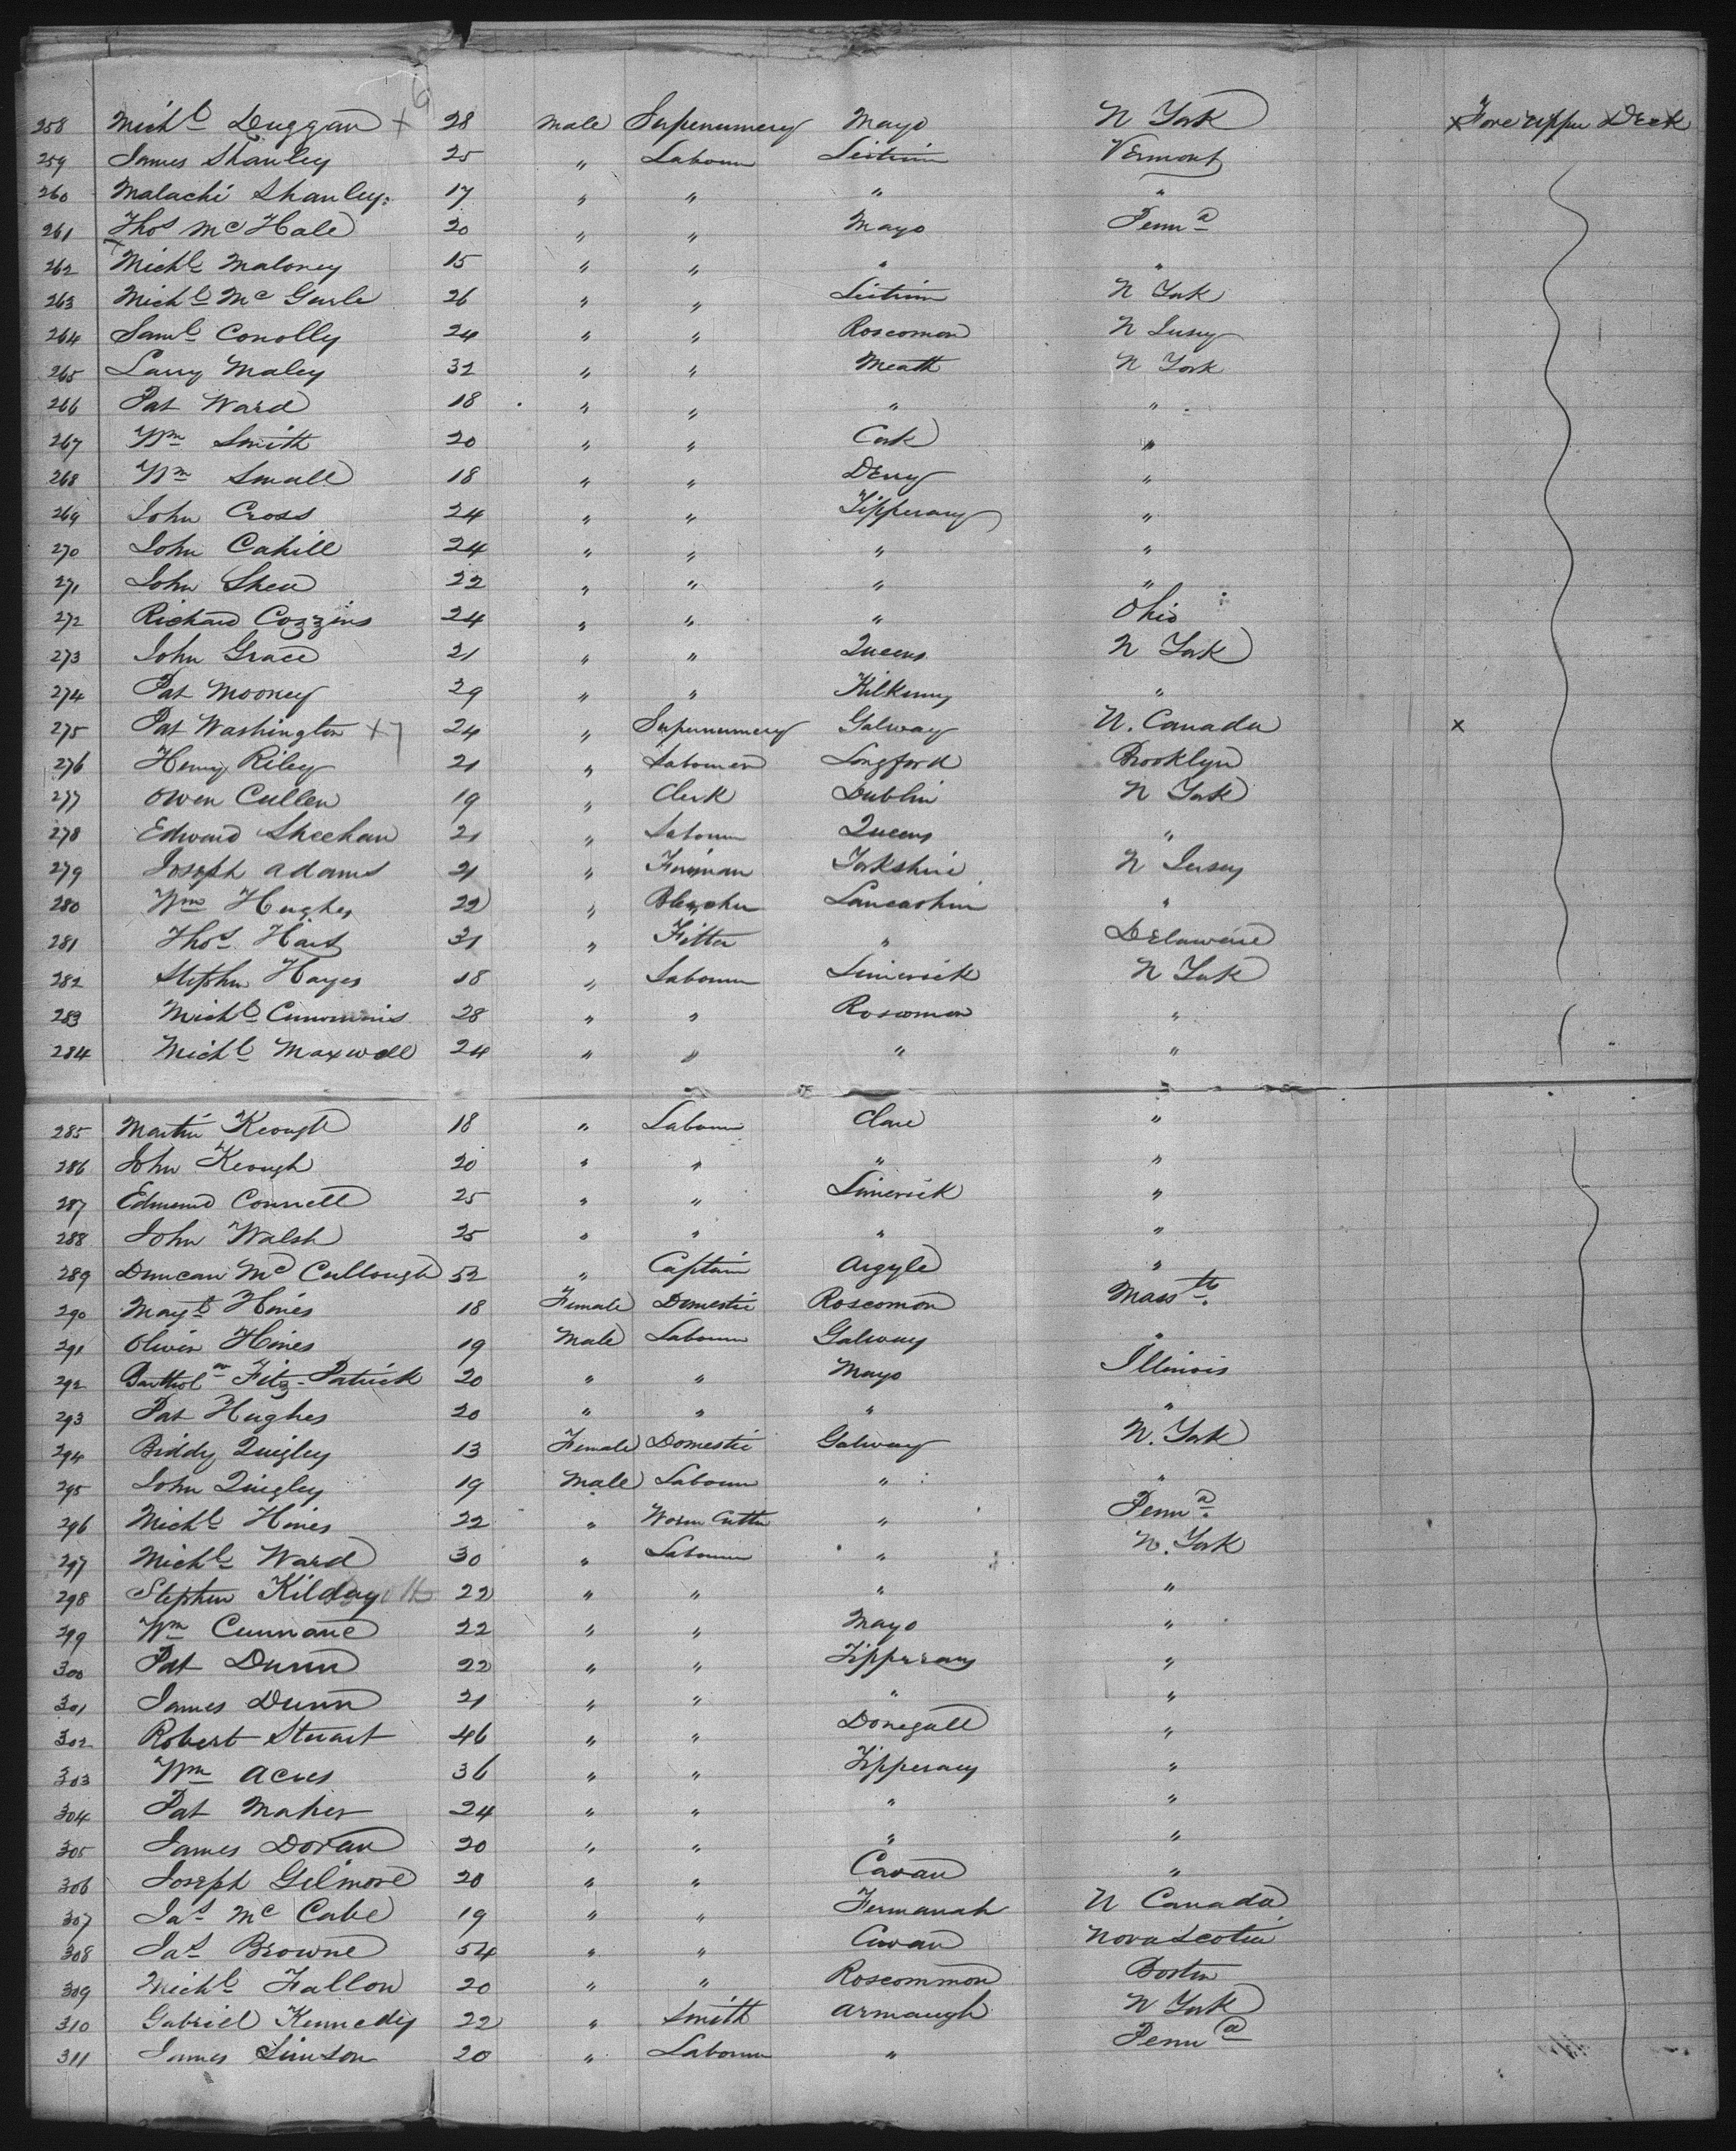 258 Michl Duggan × 28 male Supernumery Mayo N York × Fore upper Deck
259 James Shanley 25 " Labourer Leitrim Vermont
260 Malachi Shanley 17 " " " "
261 Thos McHale 20 " " Mayo Penna
262 Michl Maloney 15 " " " "
263 Michl Mc 26 " " Leitrim N York
264 Saml Conolly 24 " " Roscomon N Jersey
265 Larry Maley 32 " " Meath N York
266 Pat Ward 18 " " " "
267 Wm Smith 20 " " Cork "
268 Wm Small 18 " " Derry "
269 John Cross 24 " " Tipperary "
270 John Cahill 24 " " " "
271 John Shea 22 " " " "
272 Richard Cozzins 24 " " " Ohio
273 John Grace 21 " " Queens N York
274 Pat Mooney 29 " " Kilkenny "
275 Pat Washington × 7 24 " Supernumery Galway U. Canada ×
276 Henry Riley 21 " Labourer Longford Brooklyn
277 Owen Cullen 19 " Clerk Dublin N York
278 Edward Sheehan 21 " Labourer Queens "
279 Joseph Adams 21 " Yorkshire N Jersey
280 Wm Hughes 22 " Bleacher Lancashire "
281 Thos Hart 31 " Fitter " Delaware
282 Stephen Hayes 18 " Labourer Limerick N York
283 Michl Cummins 28 " " Roscomon "
284 Michl Maxwell 24 " " " "
285 Martin Keough 18 " Labourer Clare "
286 John Keough 20 " " " "
287 Edmund Connell 25 " " Limerick "
288 John Walsh 25 " " " "
289 Duncan McCullough 52 " Captain Argyle "
290 Mayt Hines 18 Female Domestic Roscomon Masstts
291 Oliver Hines 19 Male Labourer Galway "
292 Bartholm Fitz-Patrick 20 " " Mayo Illinois
293 Pat Hughes 20 " " " "
294 Biddy Quigley 13 Female Domestic Galway N. York
295 John Quigley 19 Male Labourer " "
296 Michl Hines 22 " Cutter " Penna
297 Michl Ward 30 " Labourer " N. York
298 Stephen Kilday 22 " " " "
299 Wm Cunnane 22 " " Mayo "
300 Pat Dunn 22 " " Tipperary "
301 James Dunn 21 " " " "
302 Robert Stuart 46 " " Donegall "
303 Wm Acres 36 " " Tipperary "
304 Pat Maher 24 " " " "
305 James Doran 20 " " " "
306 Joseph Gilmore 20 " " Cavan "
307 Jas McCabe 19 " " Fermanah U Canada
308 Jas Browne 54 " " Cavan Nova Scotia
309 Michl Fallon 20 " " Roscommon Boston
310 Gabriel Kennedy 22 " Smith Armaugh N York
311 James Simson 20 " Labourer " Penna